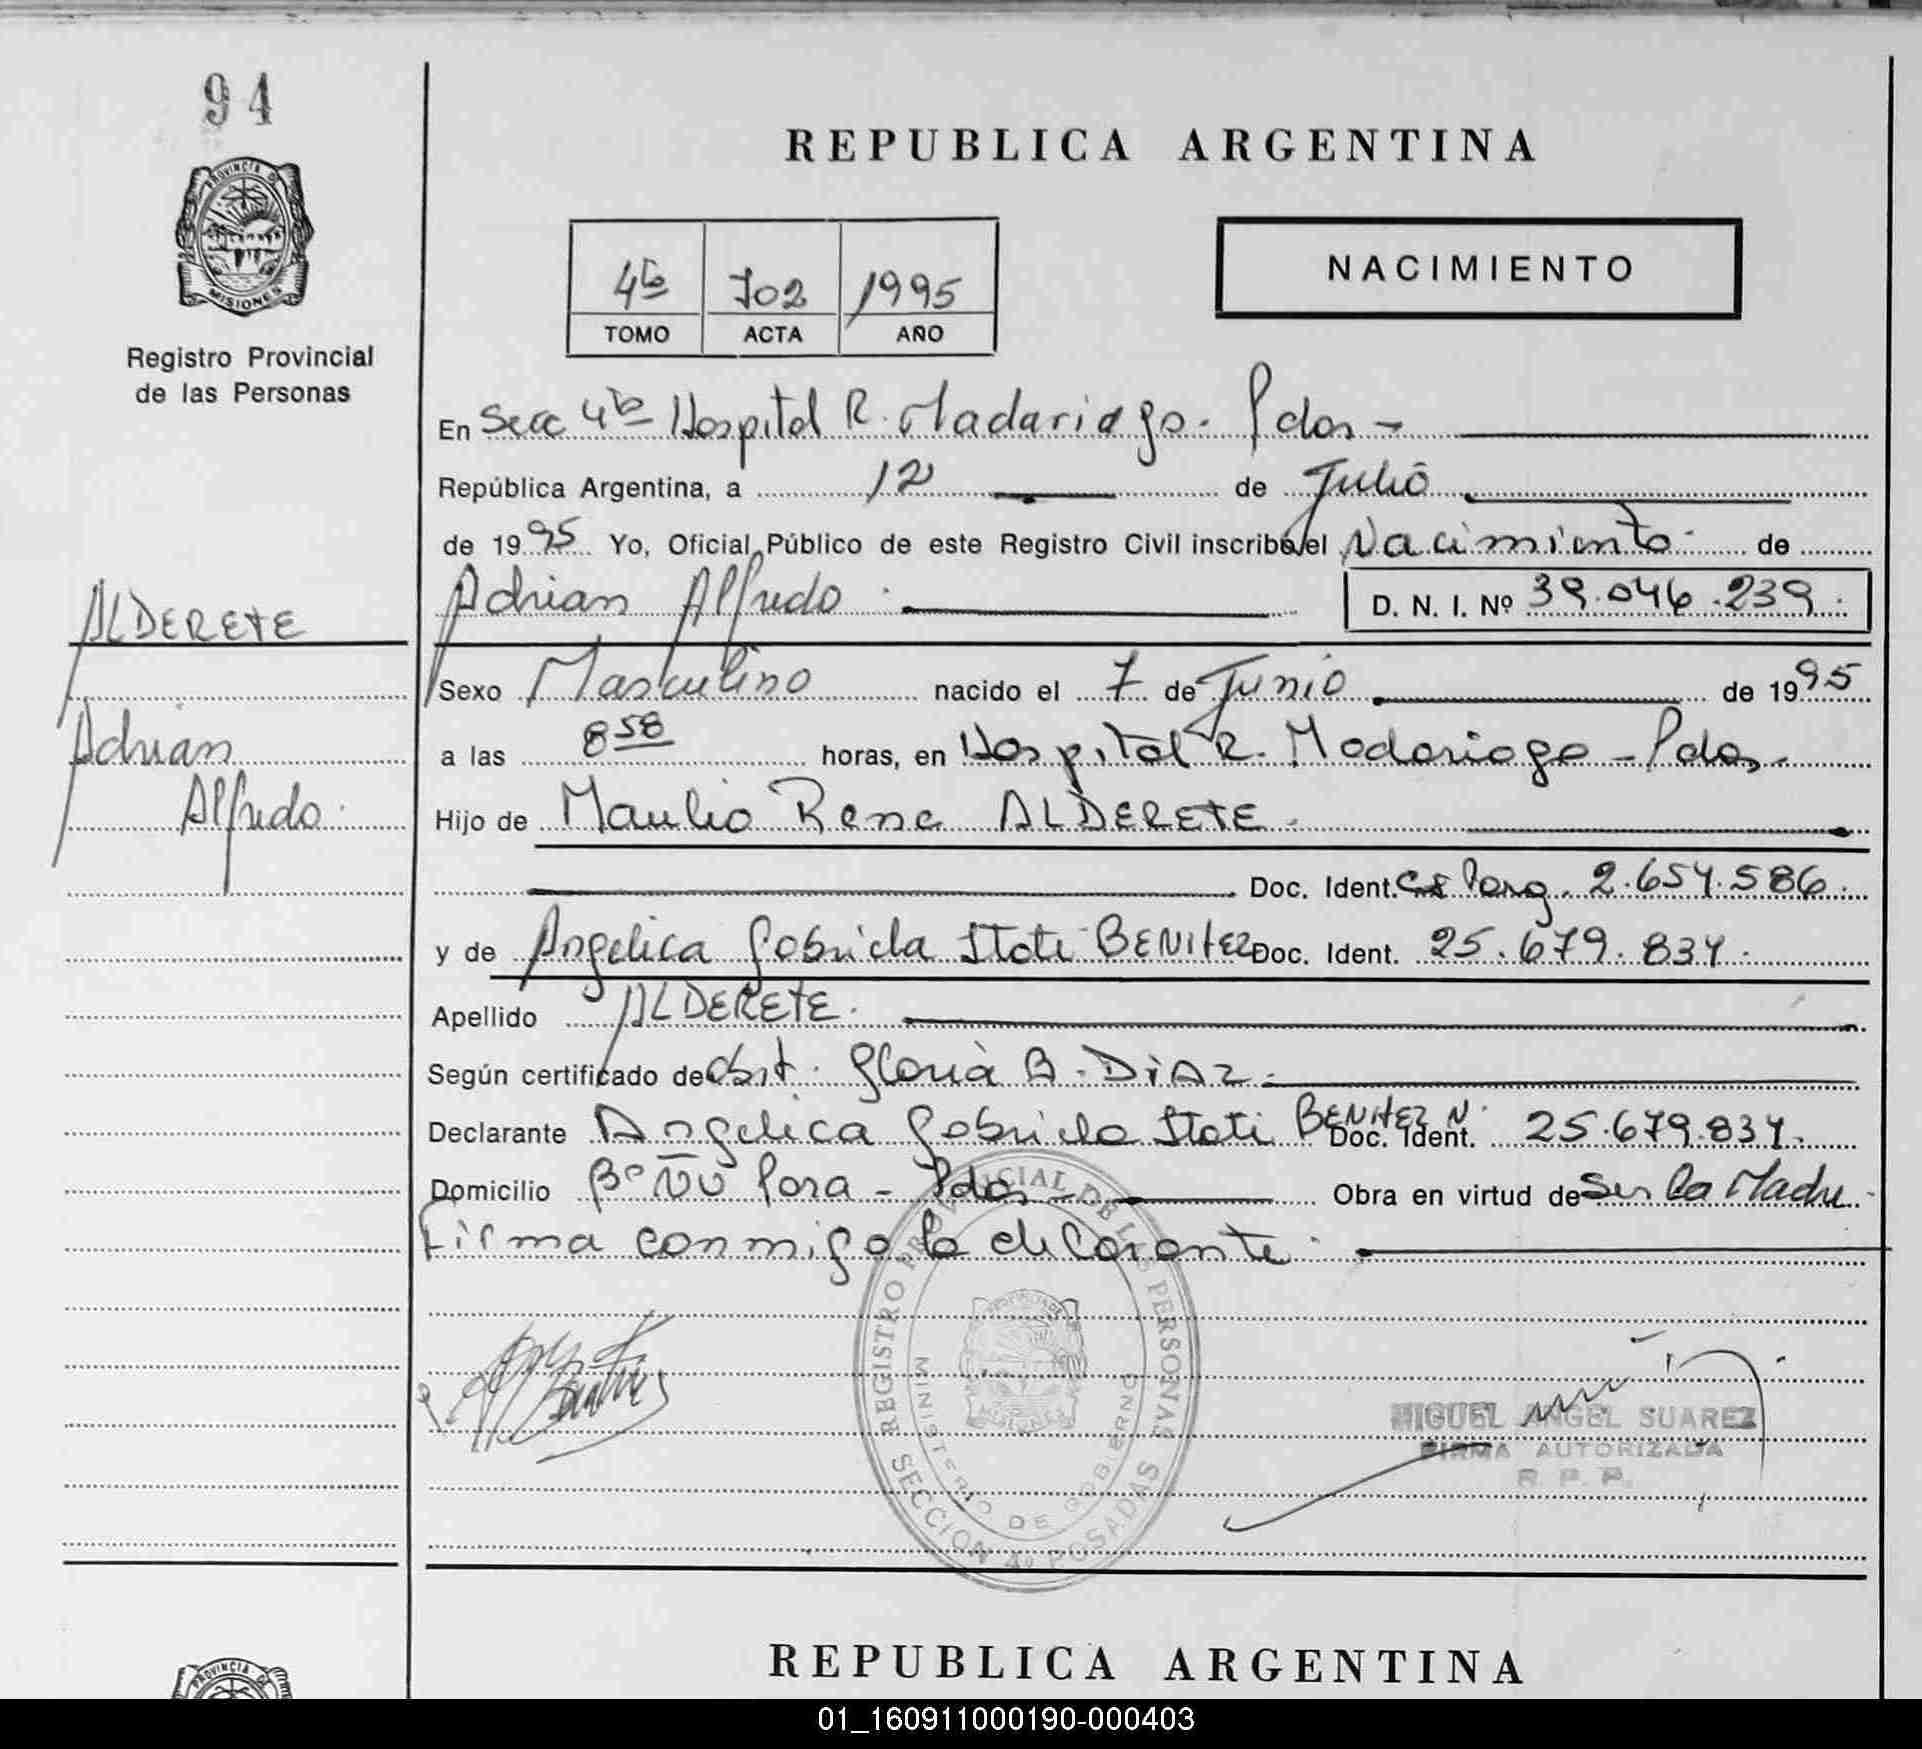 94
PROVINCIA DE
MISIONES
Registro Provincial
de las Personas
REPUBLICA ARGENTINA
4ta 702 1995
TOMO ACTA AÑO
NACIMIENTO
En Secc 4ta Hospital R. Madariaga. Pdas -
República Argentina, a 12 de Julio
de 1995 Yo, Oficial Público de este Registro Civil inscribo el Nacimiento de
Adrian Alfredo D. N. I. Nº 39.046.239.
ALDERETE
Sexo Masculino nacido el 7 de Junio de 1995
Adrian
Alfredo.
a las 8 58 horas, en Hospital R. Madariaga - Pdas.
Hijo de Rene ALDERETE.
Doc. Ident. 2.654.586.
y de Angelica Gabriela Itati BENITEZ Doc. Ident. 25.679.834.
Apellido ALDERETE.
Según certificado de obst. Gloria B. DIAZ.
Declarante Angelica Gabriela Itati BENITEZ N. Doc. Ident. 25.679.834.
Domicilio Bº Ñu Pora - Pdas - Obra en virtud de Ser la Madre.
Firma conmigo la declarante.
REGISTRO PROVINCIAL DE LAS PERSONAS
MINISTERIO DE GOBIERNO
SECCION 4º POSADAS
MIGUEL ANGEL SUAREZ
FIRMA AUTORIZADA
R. P. P.
PROVINCIA DE
REPUBLICA ARGENTINA
01_160911000190-000403